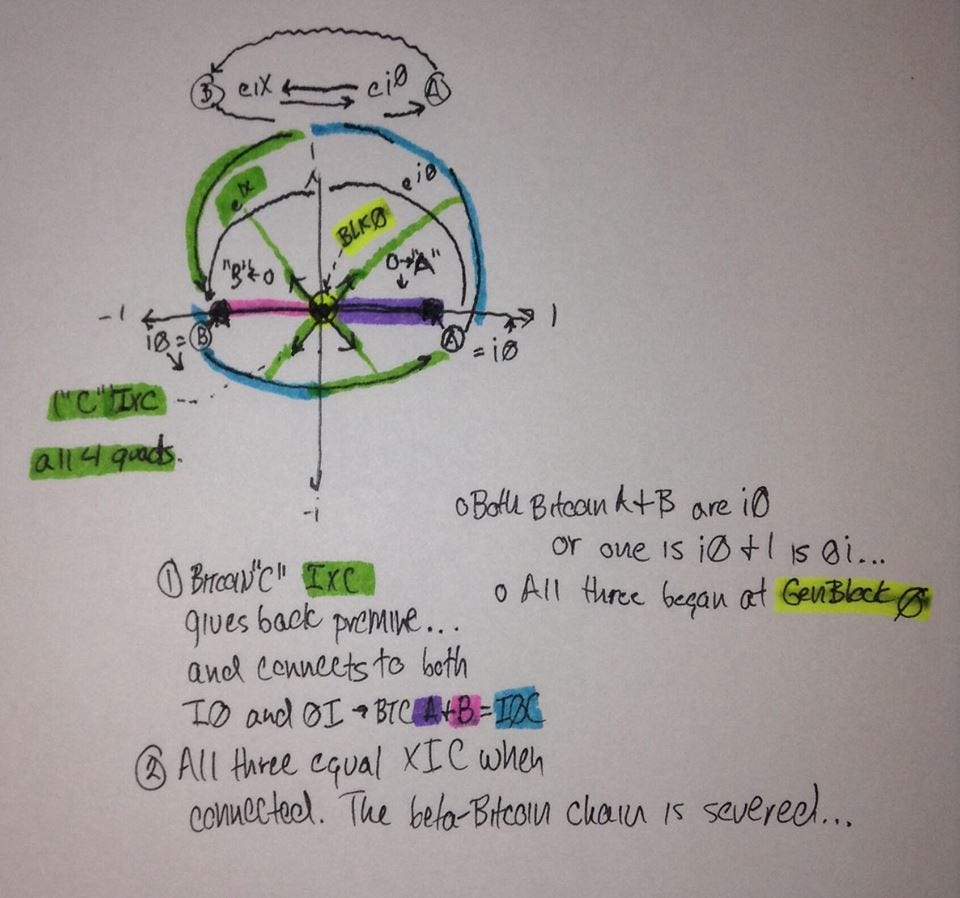 B eix eiθ A
eix eiθ
BLKØ
"B"←0 0→"A"
-1 1
iθ = B A = iθ
("C") IXC
all 4 quads.
-i
o Both Bitcoin A+B are iØ
or one is iØ + 1 is Øi...
o All three began at GenBlock Ø
① Bitcoin "C" IXC
gives back premine...
and connects to both
IØ and ØI → BTC A+B = IØC
② All three equal XIC when
connected. The beta-Bitcoin chain is severed...